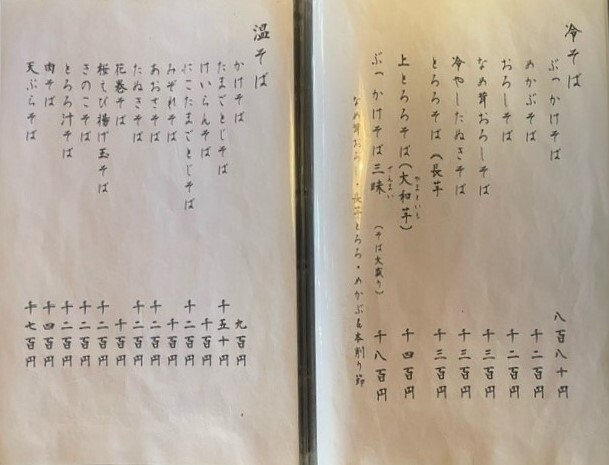 冷そば
ぶっかけそば 八百八十円
めかぶそば 千二百円
おろしそば 千二百円
なめ茸おろしそば 千三百円
冷やしたぬきそば 千三百円
とろろそば(長芋 千三百円
上とろろそば(大和芋) 千四百円
ぶっかけそば三昧 (そば大盛り) 千八百円
なめ茸おろ・長芋とろろ・めかぶ&本削り節
温そば
かけそば 九百円
たまごとじそば 千五十円
けいらんそば 千百円
にこたまごとじそば 千二百円
みぞれそば 千百円
あおさそば 千二百円
たぬきそば 千二百円
花巻そば 千百円
桜えび揚げ玉そば 千二百円
きのこそば 千二百円
とろろ汁そば 千二百円
肉そば 千四百円
天ぷらそば 千七百円